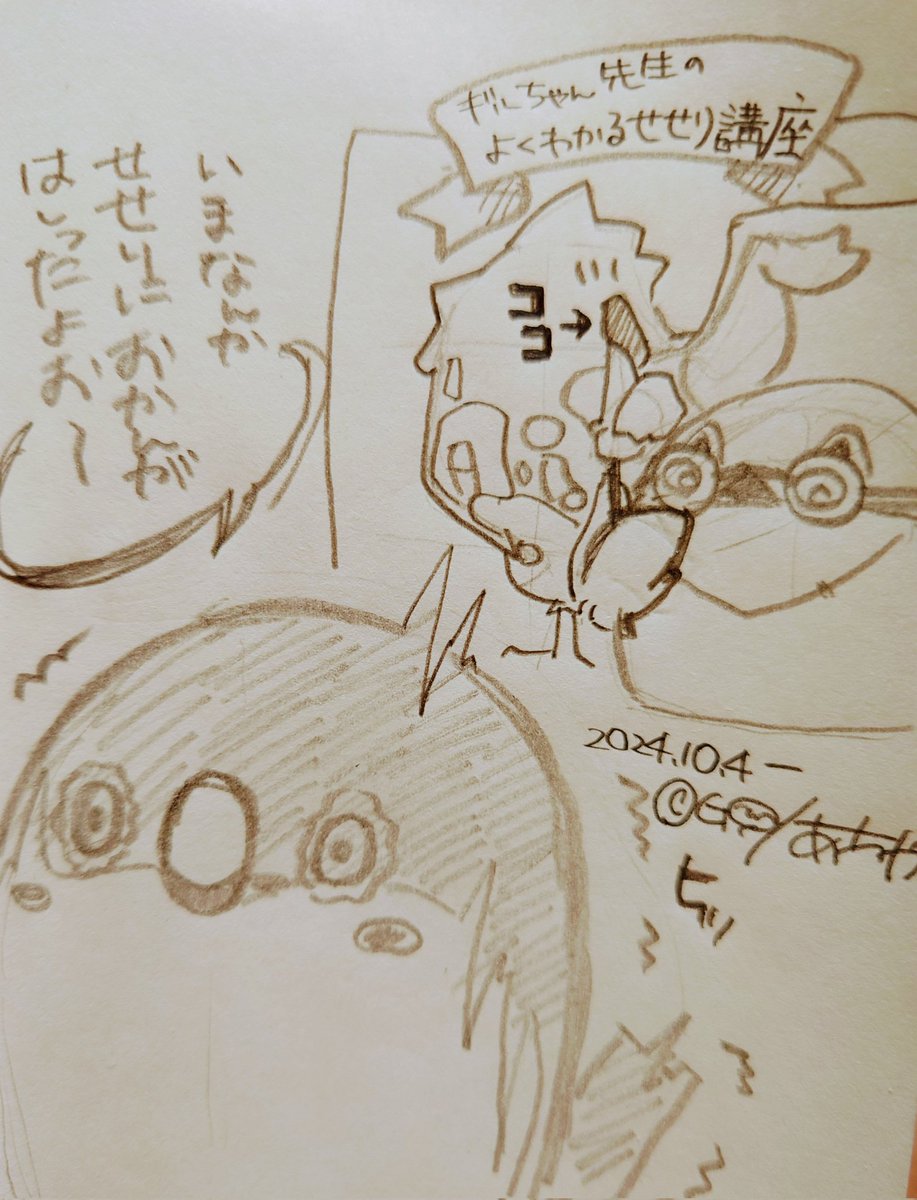 ギルちゃん先生の
よくわかるせせり講座
ココ→
いまなんか
せせりにおかんが
はしったよお〜
2024.10.4ー
ヒッ